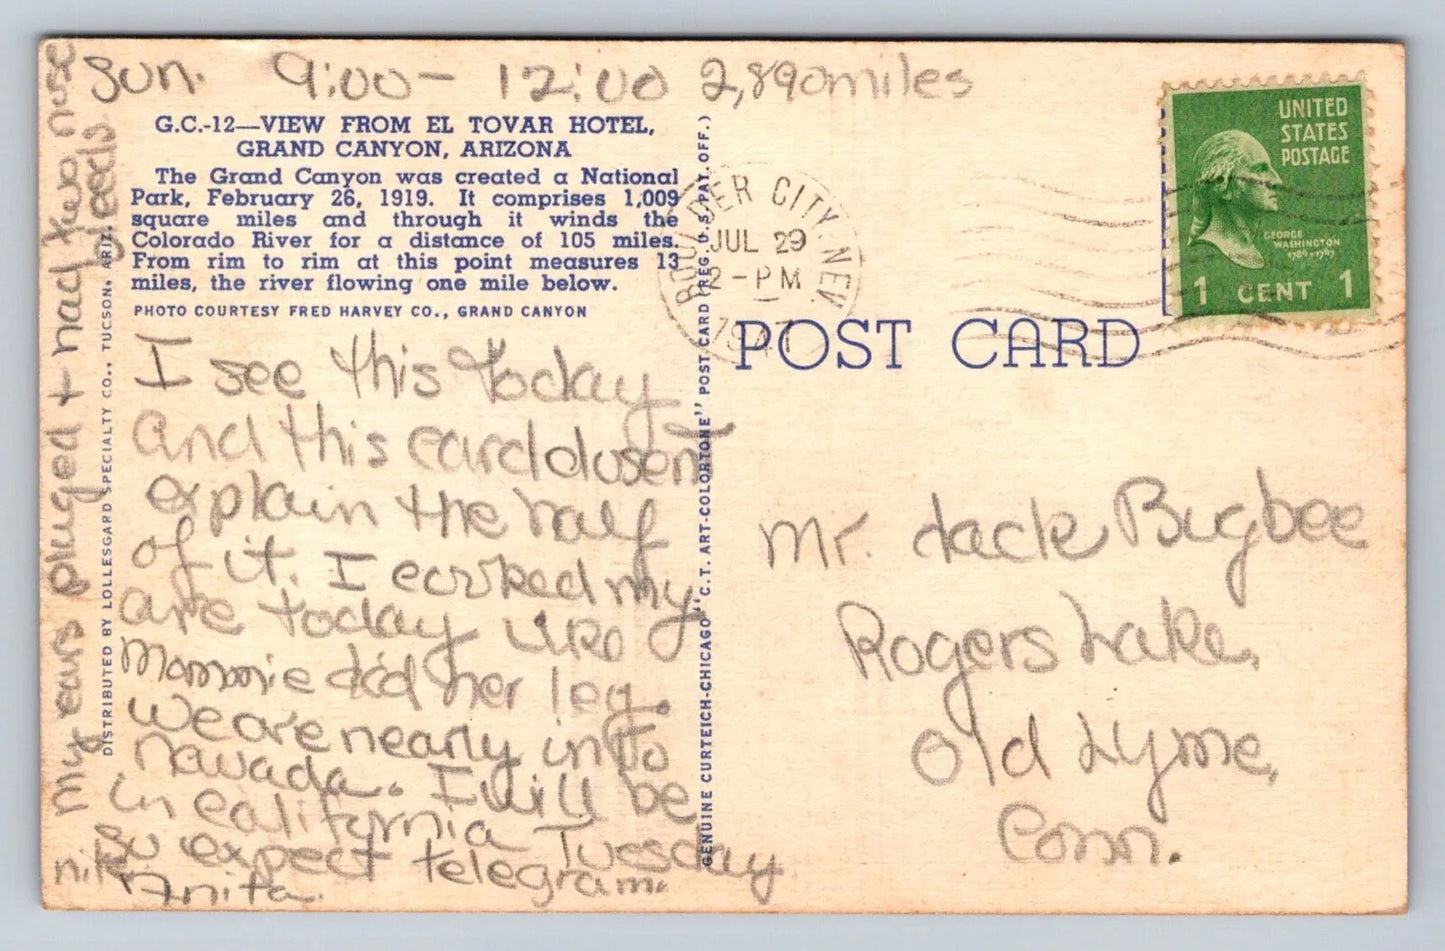 Sun. 9:00 – 12:00 2,890 miles
G.C.-12—VIEW FROM EL TOVAR HOTEL,
GRAND CANYON, ARIZONA
The Grand Canyon was created a National
Park, February 26, 1919. It comprises 1,009
square miles and through it winds the
Colorado River for a distance of 105 miles.
From rim to rim at this point measures 13
miles, the river flowing one mile below.
PHOTO COURTESY FRED HARVEY CO., GRAND CANYON
I see this today
and this card dusent
explain the half
of it. I
my
are today like
Mommie did her leg.
We are nearly into
Navada. I will be
in California Tuesday
nite so expect telegram.
Anita.
My ears pluged + had two nose
bleeds.
DISTRIBUTED BY LOLLESGARD SPECIALTY CO., TUCSON, ARIZ.
GENUINE CURTEICH-CHICAGO "C.T. ART-COLORTONE" POST CARD (REG. U.S. PAT. OFF.)
BOULDER CITY, NEV.
JUL 29
2-PM
1947
UNITED
STATES
POSTAGE
GEORGE
WASHINGTON
1789-1797
1 CENT 1
POST CARD
Mr. Jack Bugbee
Rogers Lake,
Old Lyme,
Conn.